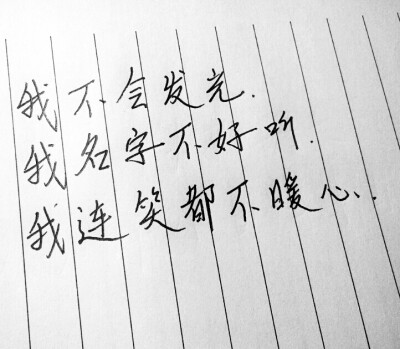 我不会发光.
我名字不好听.
我连笑都不暖心..